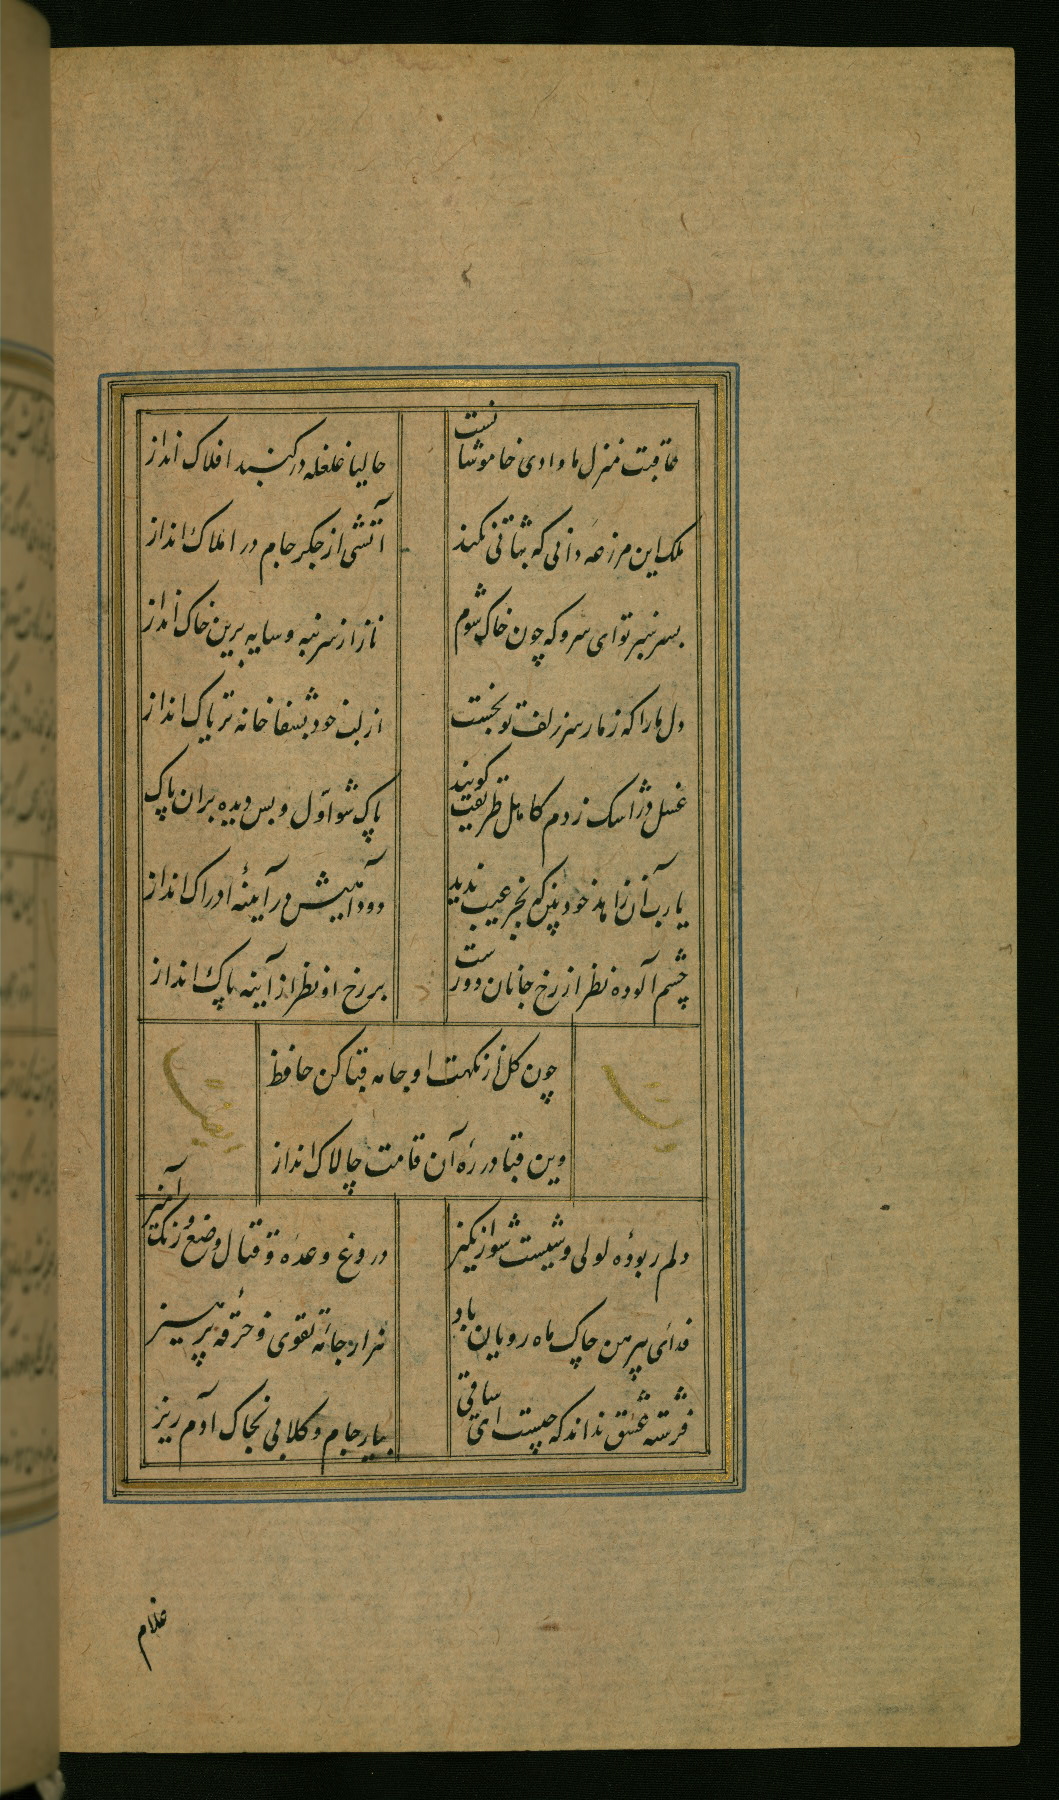 عاقبت منزل ما وادی خاموشانست
حالیا غلغله در کنبد افلاک انداز
ملک این مزرعه دانی که ثباتی نکند
آتشی از جکر جام در املاک انداز
بسر سبز تو ای سرو که چون خاک شوم
ناز از سر بنه و سایه برین خاک انداز
دل ما را که ز مار سر زلف تو بخست
از لب خود بشفا خانه تریاک انداز
غسل در اشک زدم کاهل طریقت کویند
پاک شو اول و بس دیده بران پاک
یا رب آن زاهد خودبین که بجز عیب ندید
دود آهیش در آیینهٔ ادراک انداز
چشم آلوده نظر از رخ جانان دورست
بر رخ او نظر از آینه پاک انداز
چون کل از نکهت او جامه قبا کن حافظ
وین قبا در ره آن قامت چالاک انداز
دلم ربوده لولی وشیست شور انکیز
دروغ وعده و قتال وضع و رنک آمیز
فدای پیرهن چاک ماه رویان باد
هزار جامهٔ تقوی و خرقهٔ پرهیز
فرشته عشق نداند که چیست ای ساقی
بیار جام و کلابی بخاک آدم ریز
غلام